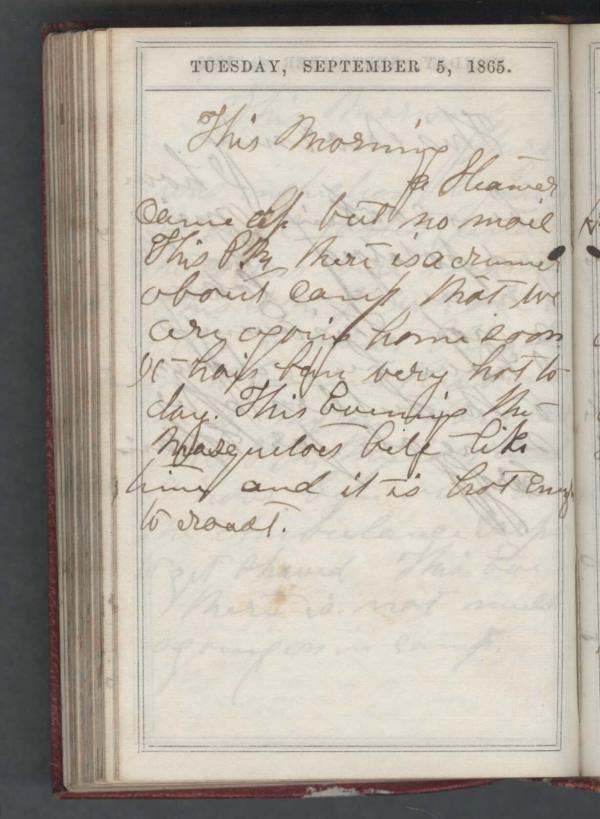 TUESDAY, SEPTEMBER 5, 1865.
This Morning
a Steamer
came up but no mail
This P.M. there is a rumer
about camp that we
are agoing home soon
It has ben very hot to
day. This Evening the
Mosquitoes bite like
and it is hot enug
to roast.